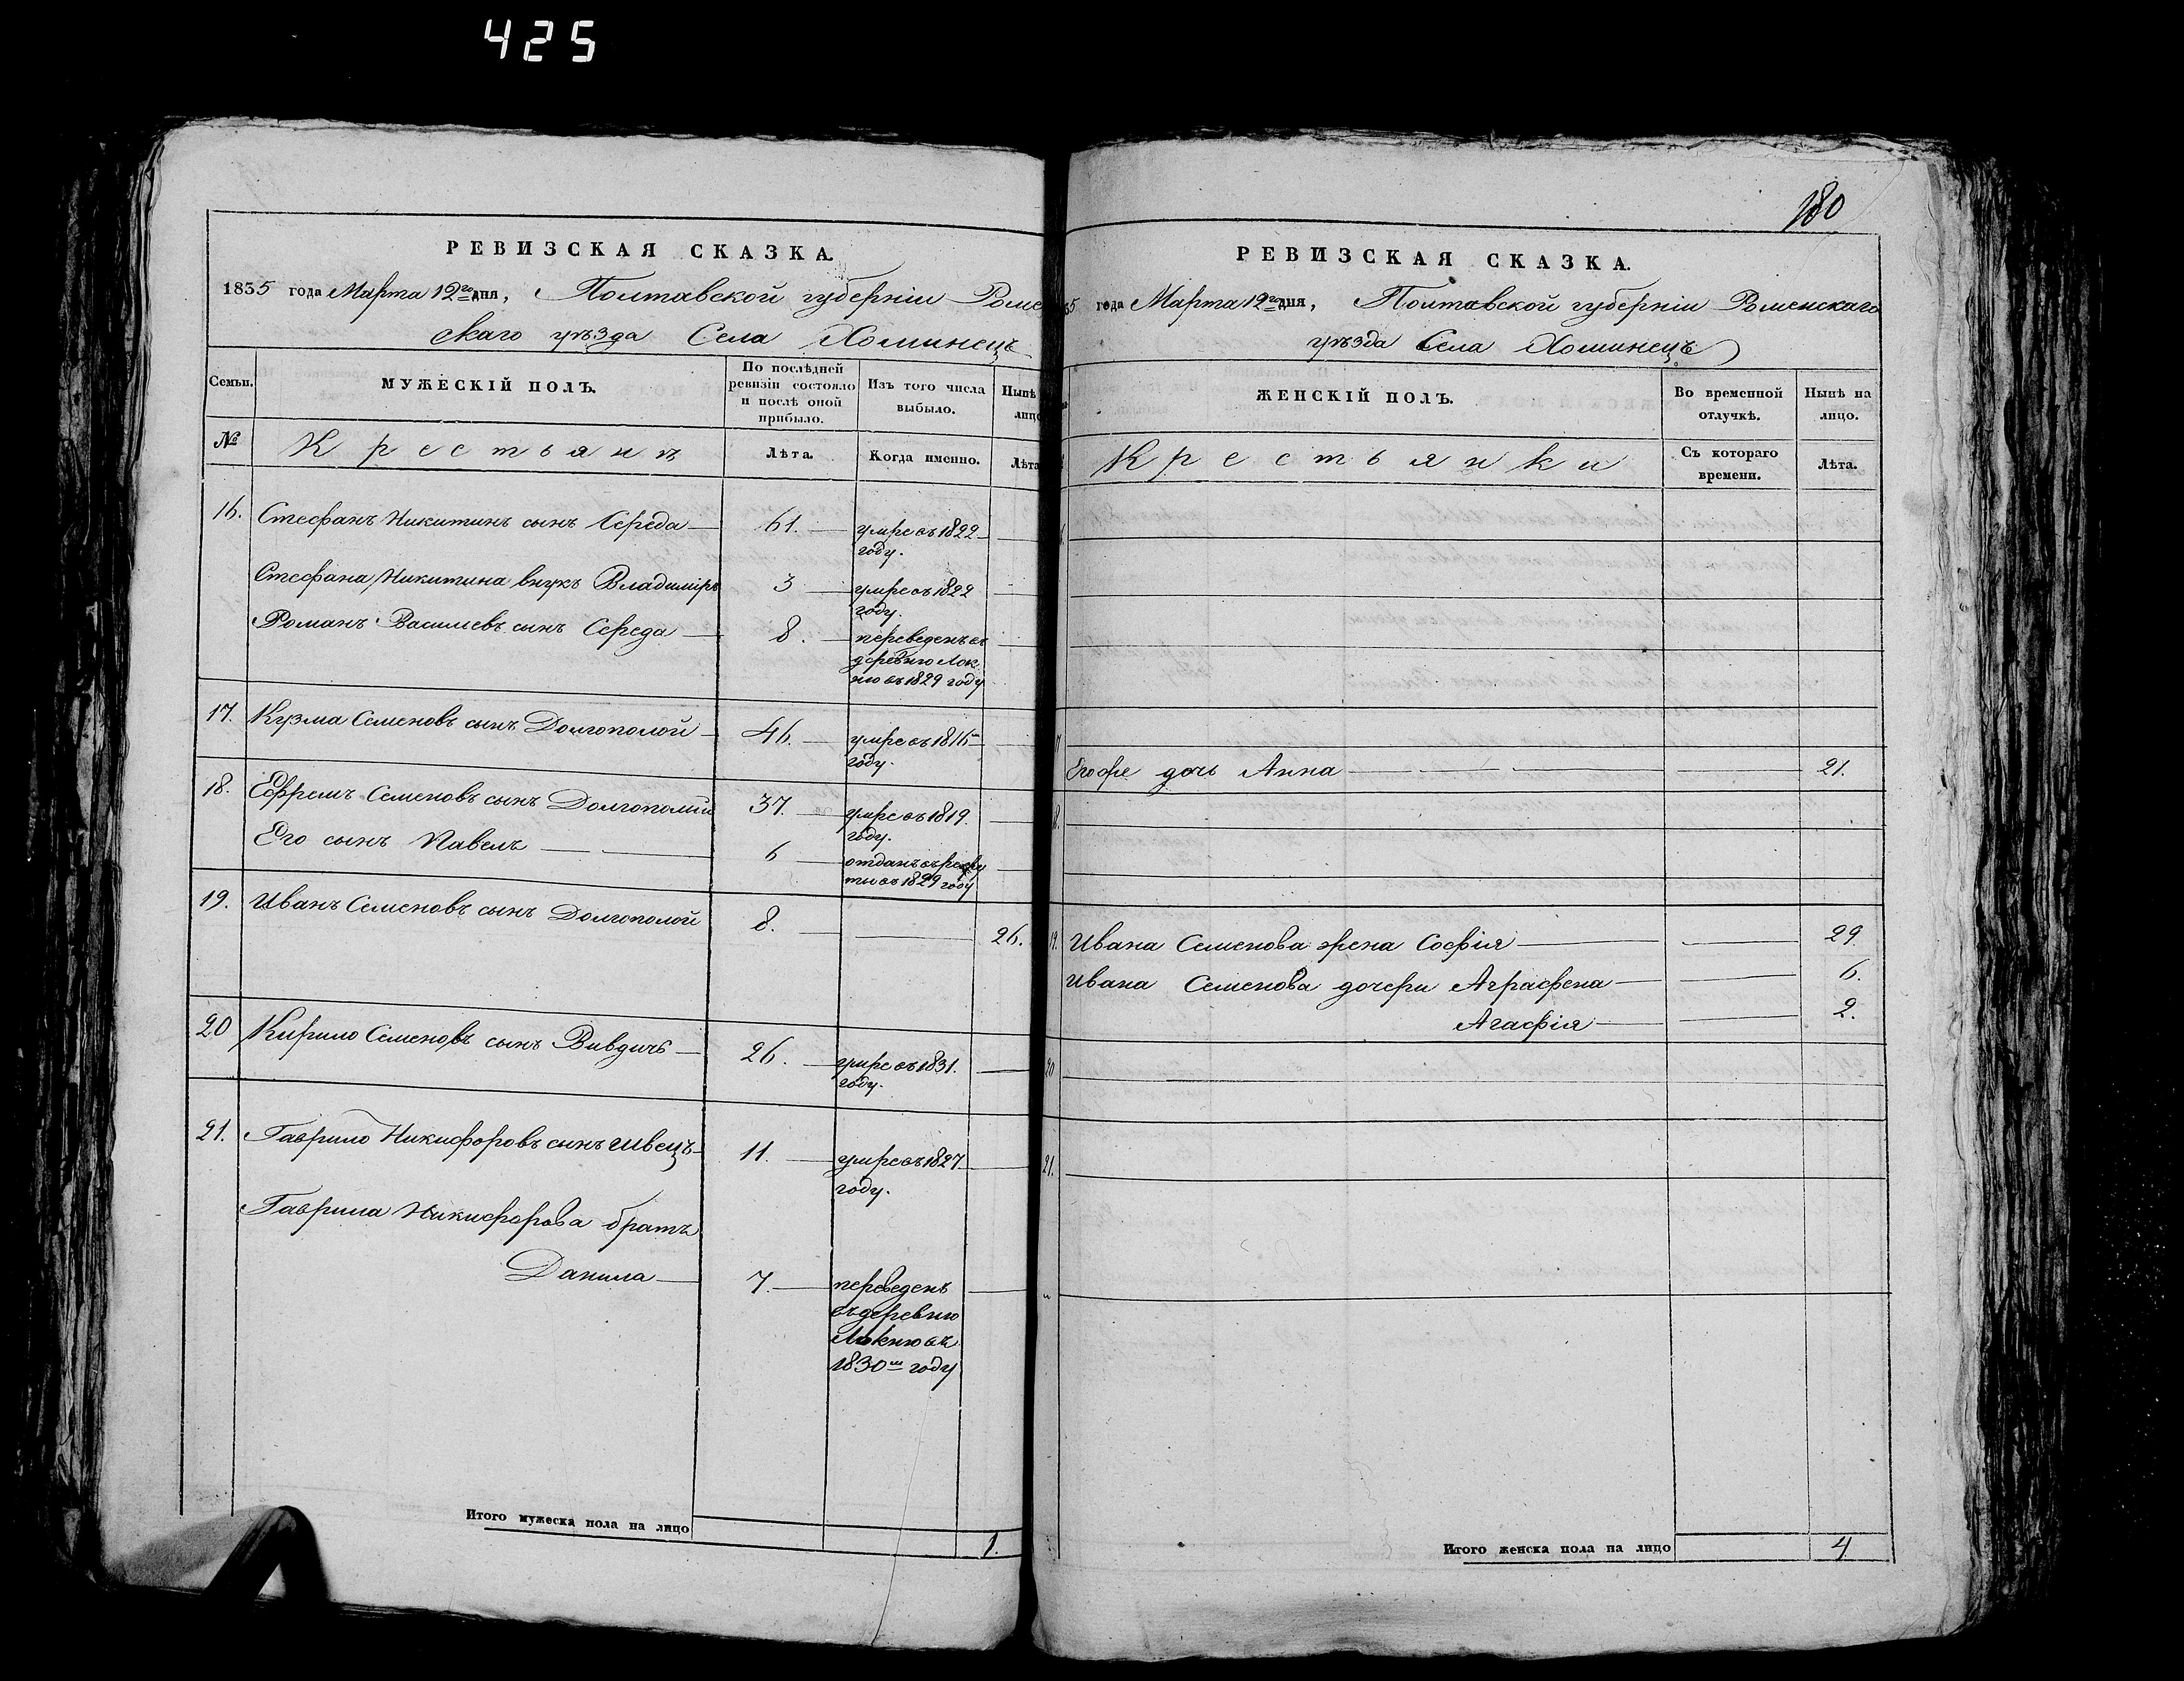 425
РЕВИЗСКАЯ СКАЗКА.
1835 года Марта 12го дня, Полтавской губерніи Роме
скаго уѣзда Села Хоминецъ
Семьи.
МУЖЕСКІЙ ПОЛЪ.
По послѣдней ревизіи состояло и послѣ оной прибыло.
Изъ того числа выбыло.
Нынѣ лицо
№
Крестьянъ
Лѣта.
Когда именно.
Лѣта
16. Стефанъ Никитинъ сынъ Середа 61. умре въ 1822
году.
Стефана Никитина внукъ Владиміръ 3 умре въ 1822
году.
Романъ Василевъ сынъ Середа 8. переведенъ въ
деревню Лок
ню въ 1829 году
17. Кузма Семеновъ сынъ Долгополой 46. умре въ 1816м
году.
18. Ефремъ Семеновъ сынъ Долгополой 37. умре въ 1819.
году.
Его сынъ Павелъ 6 отданъ въ рекру
ты въ 1829 году
19. Иванъ Семеновъ сынъ Долгополой 8. 26.
20 Кирило Семеновъ сынъ Вивдичь 26. умре въ 1831.
году.
21. Гаврило Никифоровъ сынъ Швецъ 11. умре въ 1827
году.
Гаврила Никифорова братъ
Данила 7. переведенъ
въ деревню
Локню въ
1830м году
Итого мужеска пола на лицо 1.
180
РЕВИЗСКАЯ СКАЗКА.
35 года Марта 12го дня, Полтавской губерніи Роменскаго
уѣзда Села Хоминецъ
ЖЕНСКІЙ ПОЛЪ.
Во временной отлучкѣ.
Нынѣ на лицо.
Крестьянки
Съ котораго времени.
Лѣта.
Его же дочь Анна 21.
18.
19. Ивана Семенова жена Софія 29.
Ивана Семенова дочери Аграфена 6.
Агафія 2.
20
21.
Итого женска пола на лицо 4